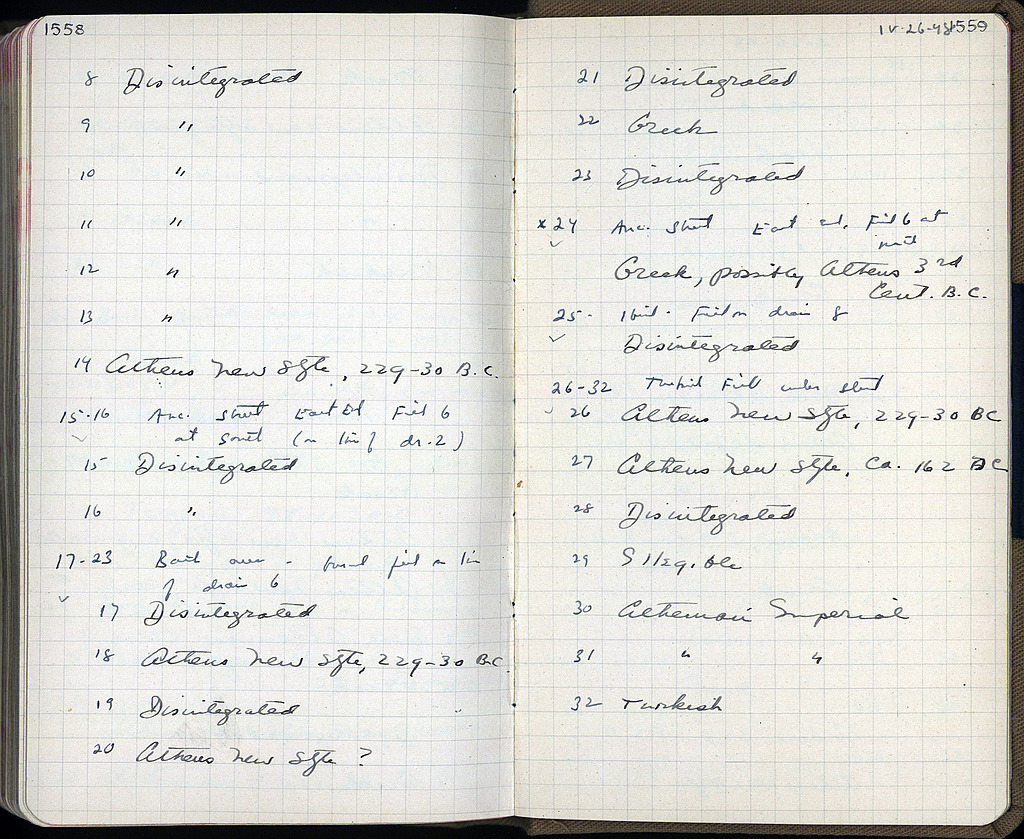 1558
8 Disintegrated
9 "
10 "
11 "
12 "
13 "
14 Athens New Style, 229-30 B.C.
15-16 Anc. Street East End Fill 6
at South (on line of dr. 2)
15 Disintegrated
16 "
17-23 on line
of drain 6
17 Disintegrated
18 Athens New Style, 229-30 B.C.
19 Disintegrated
20 Athens New Style ?
IV-26-48 1559
21 Disintegrated
22 Greek
23 Disintegrated
x 24 Anc. Street East end, Fill 6 at
Greek, possibly Athens 3rd
Cent. B.C.
25 - Ibid. drain 8
Disintegrated
26-32 Fill under street
26 Athens New Style, 229-30 BC
27 Athens New Style, Ca. 162 BC
28 Disintegrated
29 Illegible
30 Athenian Imperial
31 " "
32 Turkish